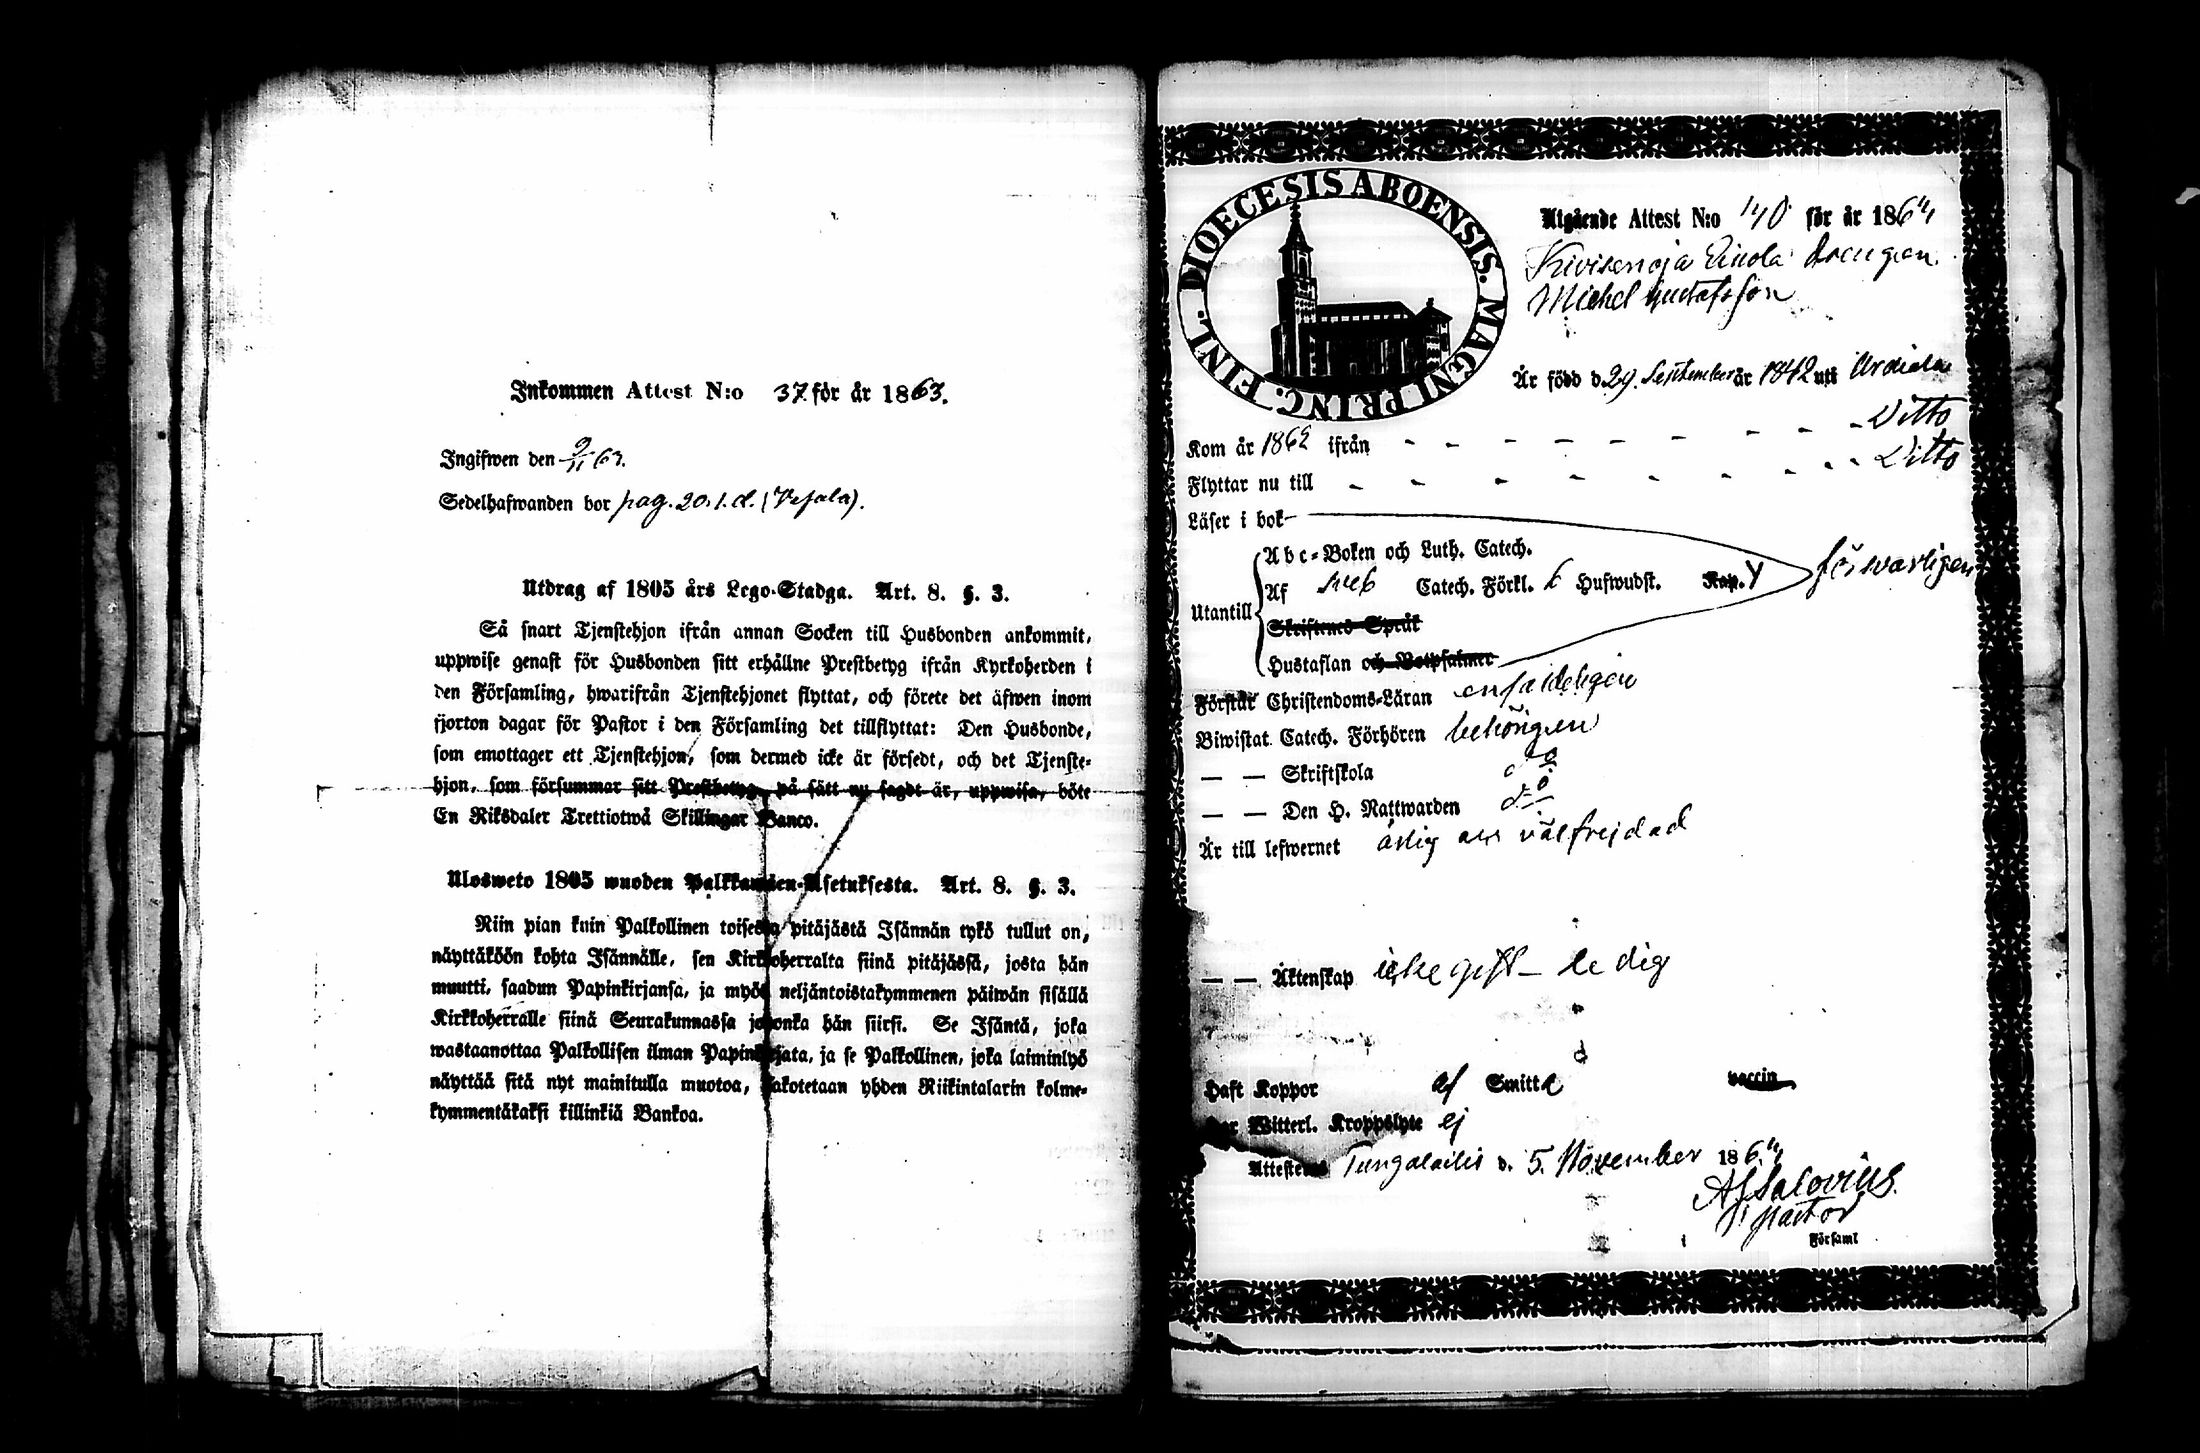 Inkommen Attest N:o 37 för år 1863.
Ingifwen den 9/11 63.
Sedelhafwanden bor pag. 20. 1. d. (Vejala).
Utdrag af 1805 års Lego-Stadga. Art. 8. §. 3.
Så snart Tjenstehjon ifrån annan Socken till Husbonden ankommit,
uppwise genast för Husbonden sitt erhållne Prestbetyg ifrån Kyrkoherden i
den Församling, hwarifrån Tjenstehjonet flyttat, och förete det äfwen inom
fjorton dagar för Pastor i den Församling det tillflyttat: Den Husbonde,
som emottager ett Tjenstehjon, som dermed icke är försedt, och det Tjenste-
hjon, som försummar sitt Prestbetyg, på sätt nu sagdt är, uppwisa, böte
En Riksdaler Trettiotwå Skillingar Banco.
Ulosweto 1805 wuoden Palkkawäen-Asetuksesta. Art. 8. §. 3.
Niin pian kuin Palkollinen toisesta pitäjästä Isännän tykö tullut on,
näyttäköön kohta Isännälle, sen Kirkkoherralta siinä pitäjässä, josta hän
muutti, saadun Papinkirjansa, ja myös neljäntoistakymmenen päiwän sisällä
Kirkkoherralle siinä Seurakunnassa johonka hän siirsi. Se Isäntä, joka
wastaanottaa Palkollisen ilman Papinkirjata, ja se Palkollinen, joka laiminlyö
näyttää sitä nyt mainitulla muotoa, sakotetaan yhden Riikintalarin kolme-
kymmentäkaksi killinkiä Bankoa.
DIOECESIS ABOENSIS. MAGNI PRINC. FINL.
Utgående Attest N:o 140 för år 1864
Kivisenoja Einola drengen
Michel Gustafsson
Är född d. 29. September år 1842 uti Urdiala
Kom år 1862 ifrån - - - - - - - - - Ditto
Flyttar nu till - - - - - - - - - Ditto
Läser i bok
Abc-Boken och Luth. Catech.
Utantill Af Sveb Catech. Förkl. Hufwudst. Kap. förswarligen
Skriftenes Språk
Hustaflan och Botpsalmer
Förstår Christendoms-Läran enfaldeligen
Biwistat Catech. Förhören behörigen
— — Skriftskola d:o
— — Den H. Nattwarden d:o
Är till lefwernet ärlig och välfrejdad
— — Äktenskap icke gift - ledig
Haft Koppor af Smitta vaccin
Har Witterl. Kroppslyte ej
Attesteras Tungalaitis d. 5. November 1864
Salovius
Pastor
i Församl